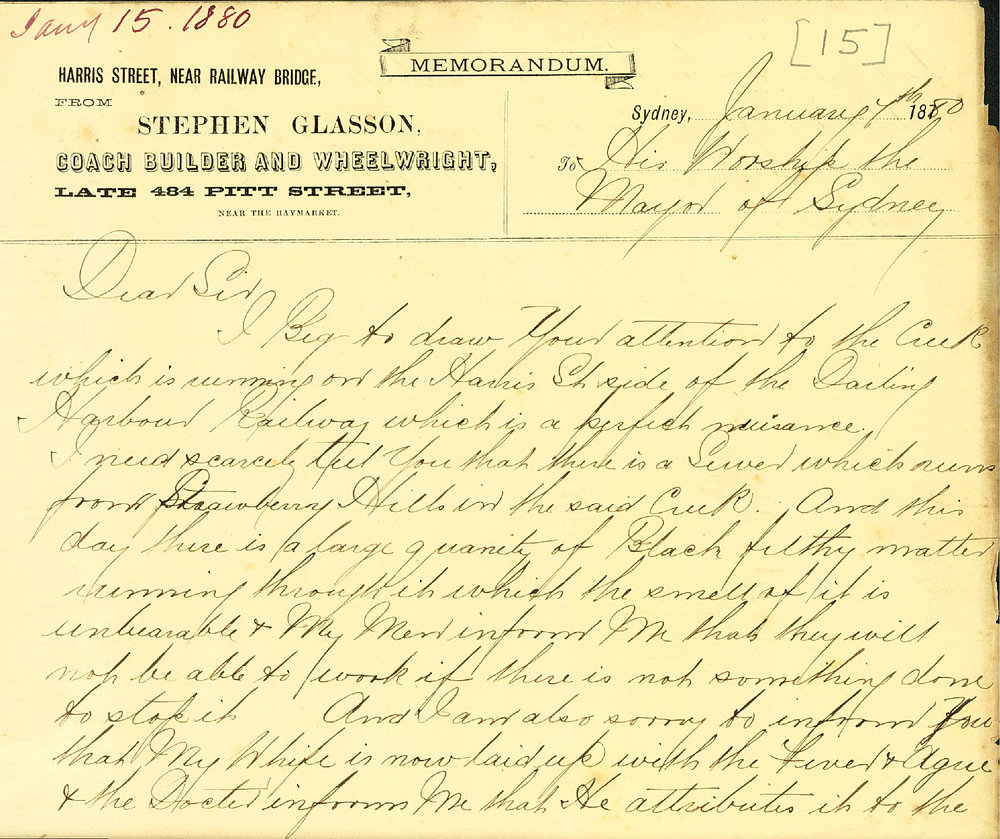 Jany 15. 1880
[15]
MEMORANDUM.
HARRIS STREET, NEAR RAILWAY BRIDGE,
FROM
STEPHEN GLASSON,
COACH BUILDER AND WHEELWRIGHT,
LATE 484 PITT STREET,
NEAR THE HAYMARKET.
Sydney, January 7th 1880
To His Worship the
Mayor of Sydney
Dear Sir
I Beg to draw Your attention to the Creek
which is running on the Harris St side of the Darling
Harbour Railway which is a perfect nuisance.
I need scarcely tell You that there is a Sewer which runs
from Strawberry Hills in the said Creek. And this
day there is a large quanity of Black filthy matter
running through it which the smell of it is
unbearable & My Men inform Me that they will
not be able to work if there is not something done
to stop it And I am also sorry to inform You
that My White is now laid up with the Fever & Ague
& the Docter informs Me that He attributes it to the